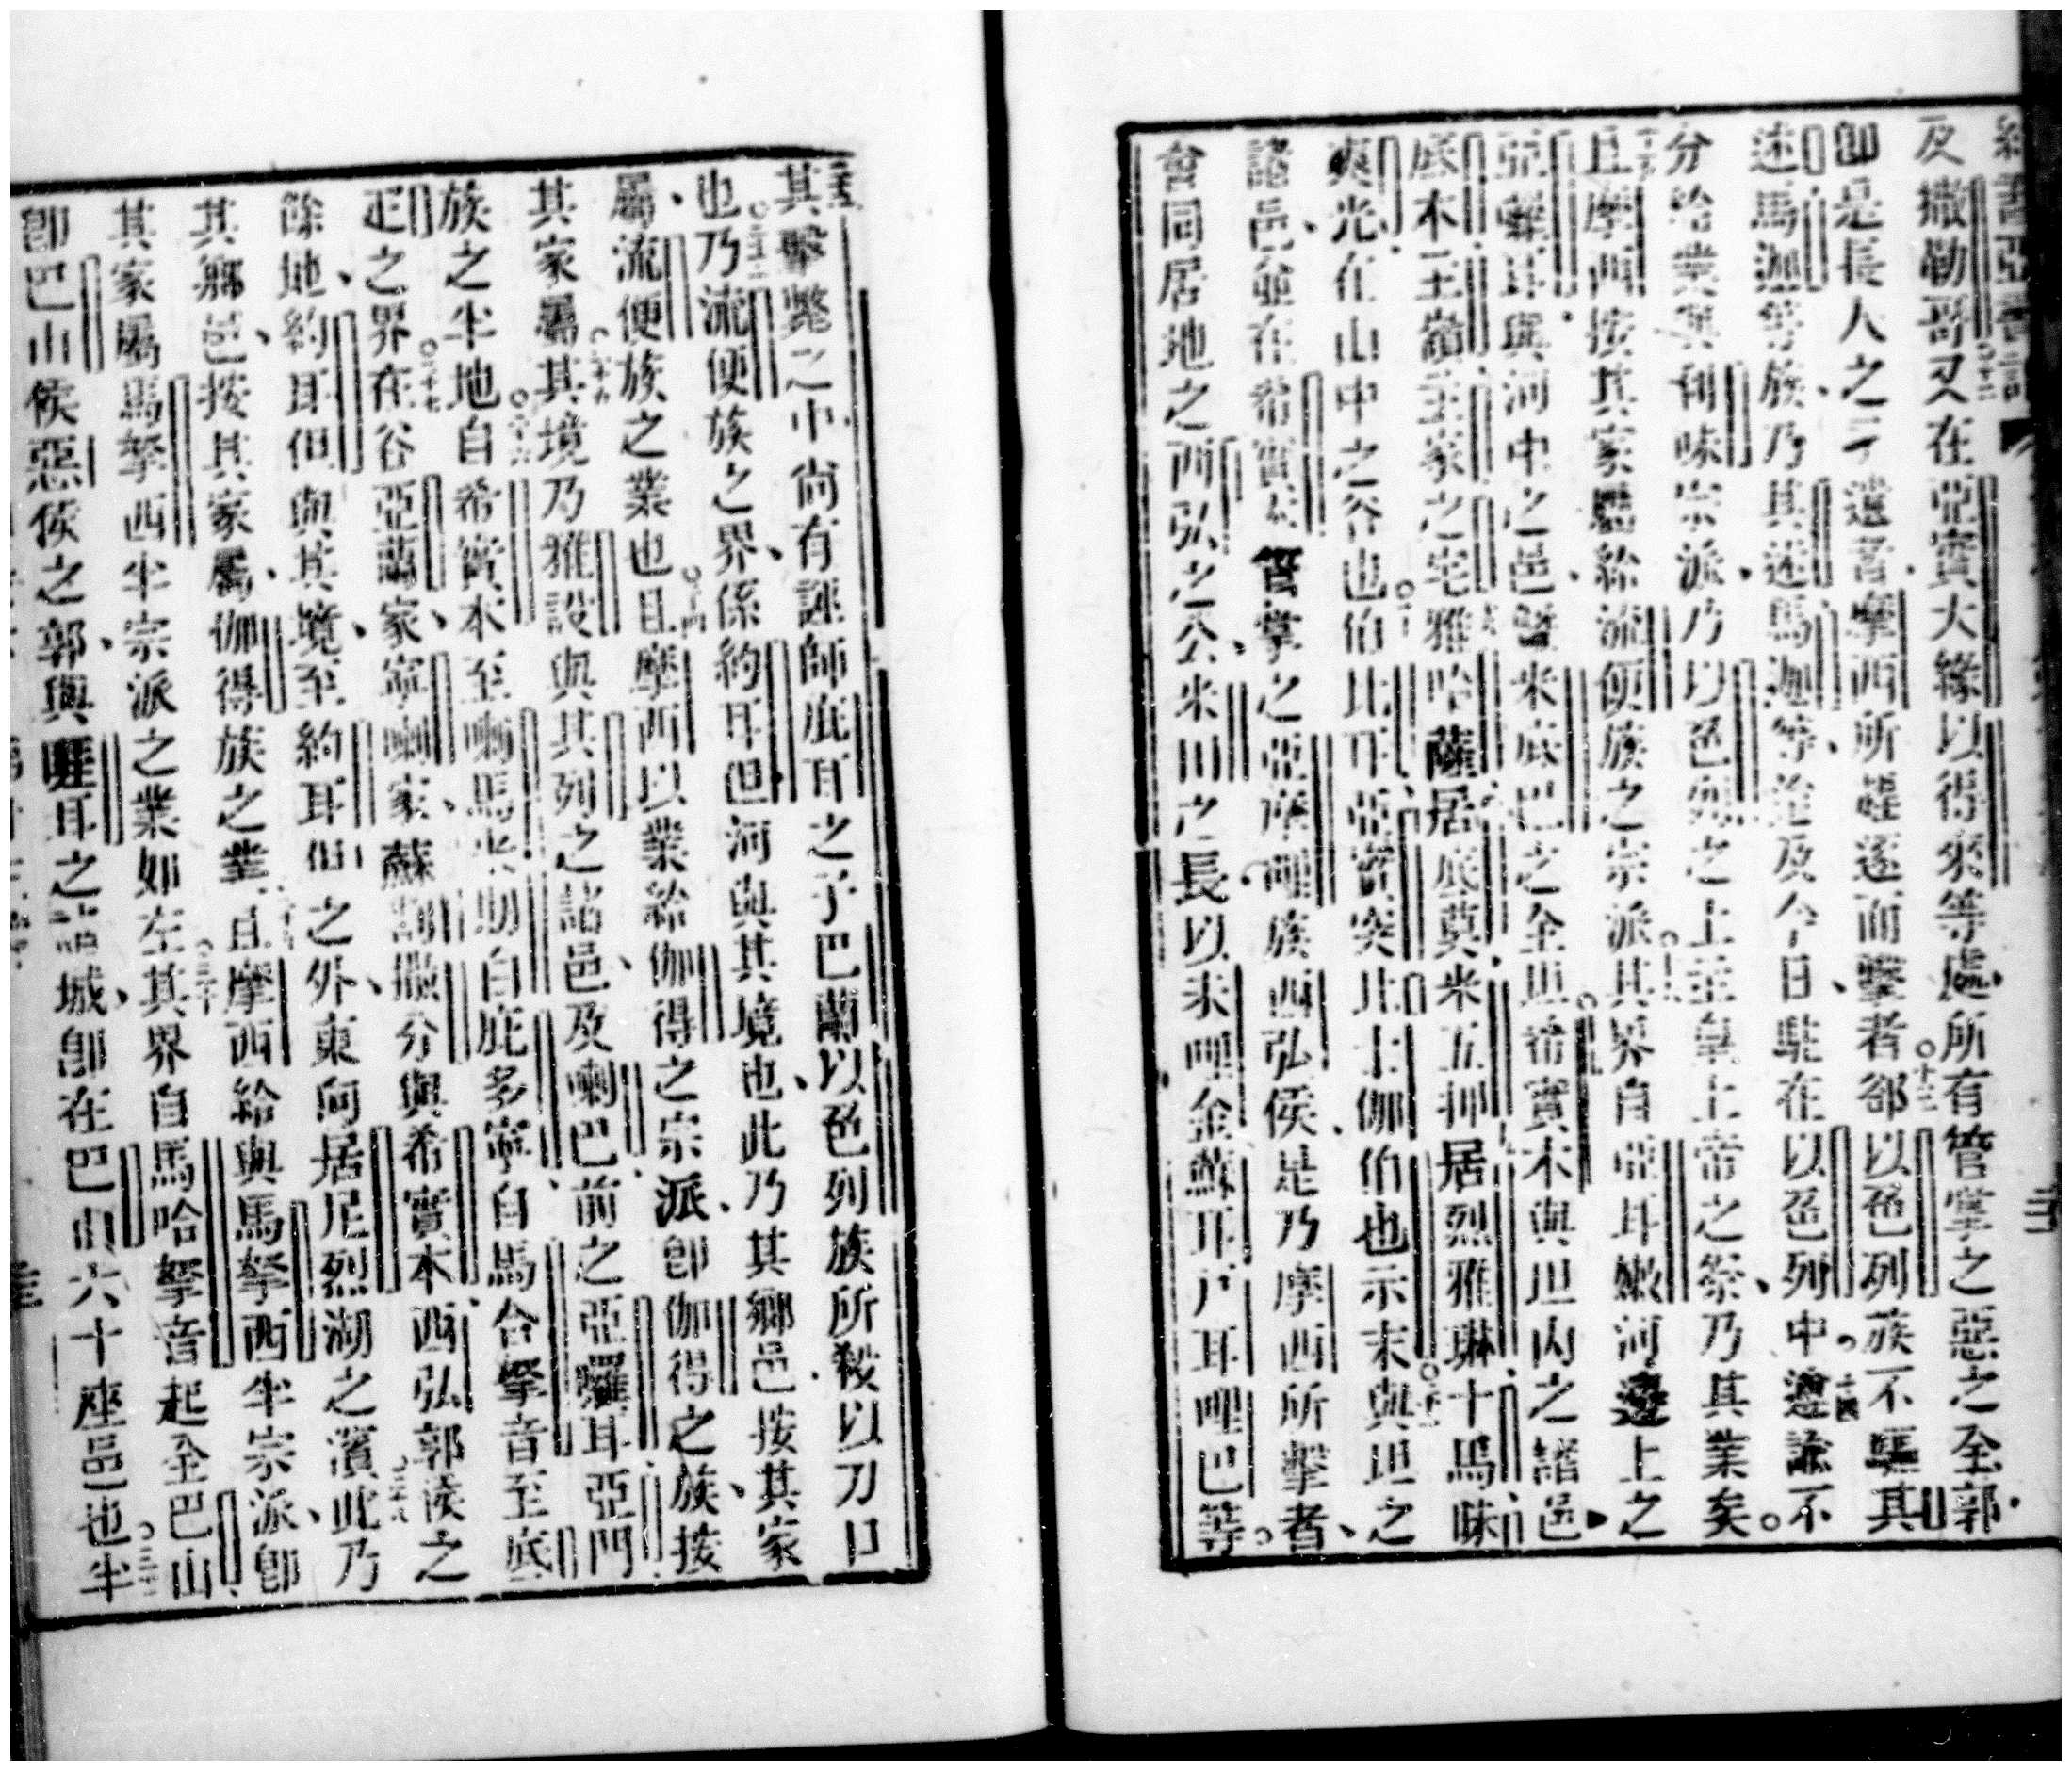 及撒勒哥又在亞實大緣以得來等處所有管掌之惡之全郭
卽是長人之遺者摩西所趕逐而擊者〇十三卻以色列族不驅其
迷馬迦等族乃其迷馬迦等並及今日駐在以色列中遵諭不
分給業與利味宗派乃以色列之上主皇上帝之祭乃其業矣
且摩西按其家屬給流便族之宗派其界自亞耳嫩河邊上之
亞囉耳與河中之邑暨米底巴之全坦希實本與坦內之諸邑
底本至巔主家之宅雅哈薩居底莫米五押居烈雅琳十馬昧
爽光在山中之谷也伯比耳亞實突比士伽伯也示末與坦之
諸邑並在希實本管掌之亞摩哩族西弘侯是乃摩西所擊者
會同居地之西弘之公米田之長以未哩金蘇耳戶耳哩巴等
其擊斃之中尚有誣師庇耳之子巴蘭以色列族所殺以刀口
也〇二十三乃流便族之界係約耳但河與其境也此乃其鄉邑按其家
屬流便族之業也〇二十四且摩西以業給伽得之宗派卽伽得之族按
其家屬〇二十五其境乃雅設與其列之諸邑及喇巴前之亞囉耳亞門
族之半地〇二十六自希實本至喇馬米助自庇多寧自馬合拏音至底
疋之界〇二十七在谷亞藹家寧喇家蘇割撒分與希實本西弘郭侯之
餘地約耳但與其境至約耳但之外東向居尼烈湖之濱〇二十八此乃
其鄉邑按其家屬伽得族之業〇二十九且摩西給與馬拏西半宗派卽
其家屬馬拏西半宗派之業如左〇三十其界自馬哈拏音起全巴山
卽巴山侯惡侯之郭與睚耳之諸城卽在巴山六十座邑也〇三十一半